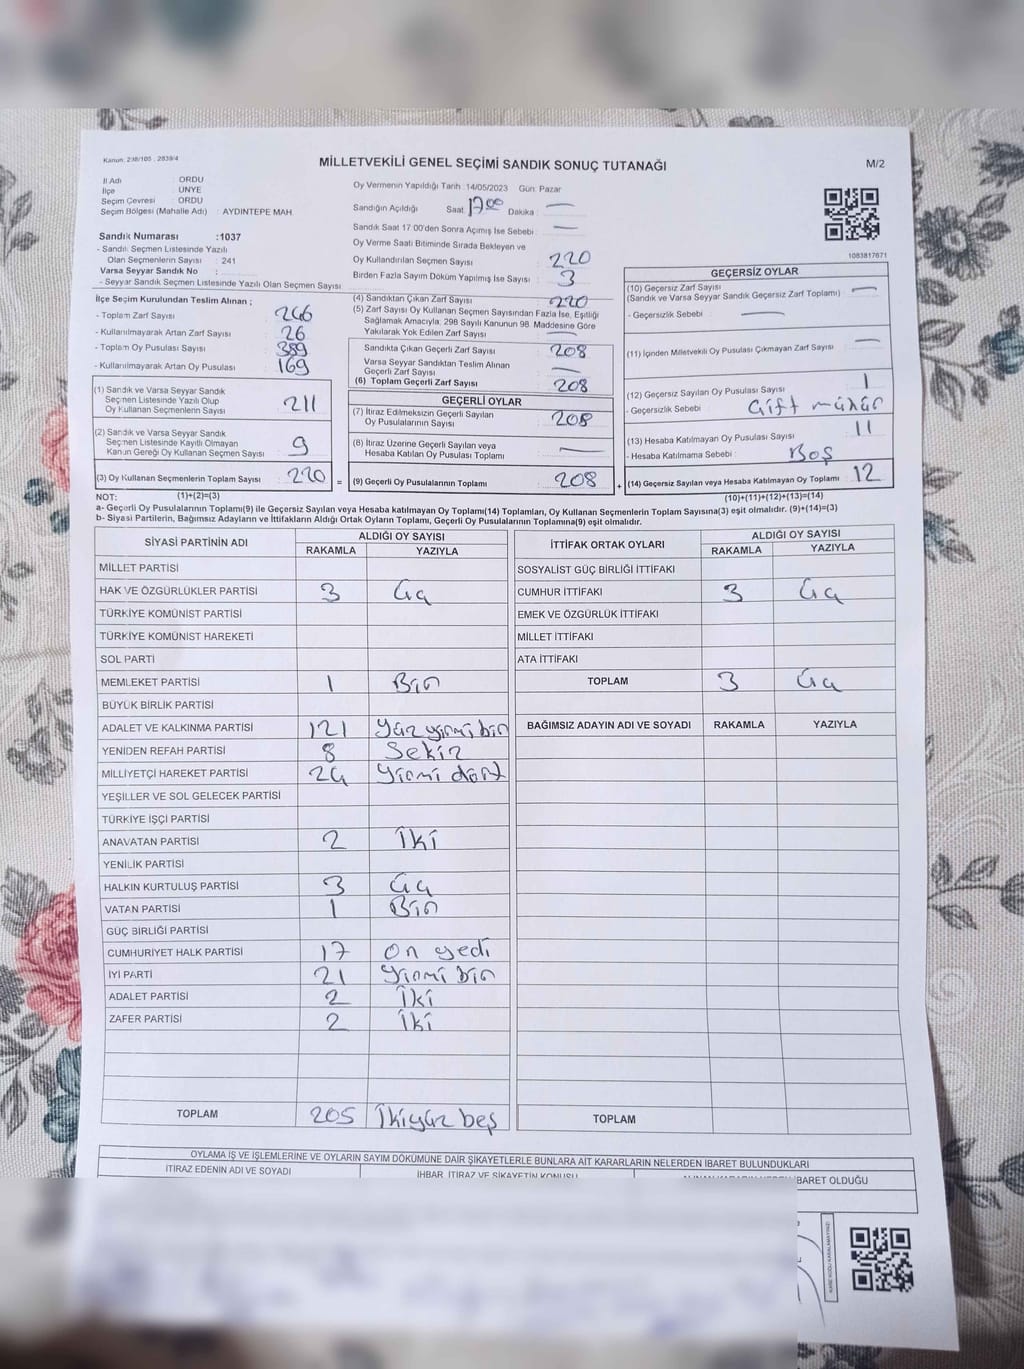 Kanun: 298/105 , 2839/4
MİLLETVEKİLİ GENEL SEÇİMİ SANDIK SONUÇ TUTANAĞI
M/2
İl Adı : ORDU
İlçe : ÜNYE
Seçim Çevresi : ORDU
Seçim Bölgesi (Mahalle Adı) : AYDINTEPE MAH.
Sandık Numarası :1037
- Sandık Seçmen Listesinde Yazılı
Olan Seçmenlerin Sayısı : 241
Varsa Seyyar Sandık No :
- Seyyar Sandık Seçmen Listesinde Yazılı Olan Seçmen Sayısı :
Oy Vermenin Yapıldığı Tarih :14/05/2023 Gün: Pazar
Sandığın Açıldığı Saat: 17 00 Dakika : —
Sandık Saat 17.00'den Sonra Açılmış İse Sebebi : —
Oy Verme Saati Bitiminde Sırada Bekleyen ve
Oy Kullandırılan Seçmen Sayısı : 220
Birden Fazla Sayım Döküm Yapılmış İse Sayısı : 3
1083817671
İlçe Seçim Kurulundan Teslim Alınan ;
- Toplam Zarf Sayısı : 246
- Kullanılmayarak Artan Zarf Sayısı : 26
- Toplam Oy Pusulası Sayısı : 389
- Kullanılmayarak Artan Oy Pusulası : 169
(1) Sandık ve Varsa Seyyar Sandık
Seçmen Listesinde Yazılı Olup
Oy Kullanan Seçmenlerin Sayısı : 211
(2) Sandık ve Varsa Seyyar Sandık
Seçmen Listesinde Kayıtlı Olmayan
Kanun Gereği Oy Kullanan Seçmen Sayısı : 9
(3) Oy Kullanan Seçmenlerin Toplam Sayısı : 220
(4) Sandıktan Çıkan Zarf Sayısı : 220
(5) Zarf Sayısı Oy Kullanan Seçmen Sayısından Fazla İse, Eşitliği
Sağlamak Amacıyla; 298 Sayılı Kanunun 98. Maddesine Göre
Yakılarak Yok Edilen Zarf Sayısı : —
Sandıkta Çıkan Geçerli Zarf Sayısı : 208
Varsa Seyyar Sandıktan Teslim Alınan
Geçerli Zarf Sayısı : —
(6) Toplam Geçerli Zarf Sayısı : 208
GEÇERLİ OYLAR
(7) İtiraz Edilmeksizin Geçerli Sayılan
Oy Pusulalarının Sayısı : 208
(8) İtiraz Üzerine Geçerli Sayılan veya
Hesaba Katılan Oy Pusulası Toplamı : —
= (9) Geçerli Oy Pusulalarının Toplamı : 208
GEÇERSİZ OYLAR
(10) Geçersiz Zarf Sayısı : —
(Sandık ve Varsa Seyyar Sandık Geçersiz Zarf Toplamı)
- Geçersizlik Sebebi : —
(11) İçinden Milletvekili Oy Pusulası Çıkmayan Zarf Sayısı : —
(12) Geçersiz Sayılan Oy Pusulası Sayısı : 1
- Geçersizlik Sebebi : Çift mühür
(13) Hesaba Katılmayan Oy Pusulası Sayısı : 11
- Hesaba Katılmama Sebebi : Boş
+ (14) Geçersiz Sayılan veya Hesaba Katılmayan Oy Toplamı : 12
NOT: (1)+(2)=(3)
(10)+(11)+(12)+(13)=(14)
a- Geçerli Oy Pusulalarının Toplamı(9) ile Geçersiz Sayılan veya Hesaba katılmayan Oy Toplamı(14) Toplamları, Oy Kullanan Seçmenlerin Toplam Sayısına(3) eşit olmalıdır. (9)+(14)=(3)
b- Siyasi Partilerin, Bağımsız Adayların ve İttifakların Aldığı Ortak Oyların Toplamı, Geçerli Oy Pusulalarının Toplamına(9) eşit olmalıdır.
SİYASİ PARTİNİN ADI
ALDIĞI OY SAYISI
RAKAMLA YAZIYLA
MİLLET PARTİSİ
HAK VE ÖZGÜRLÜKLER PARTİSİ 3 Üç
TÜRKİYE KOMÜNİST PARTİSİ
TÜRKİYE KOMÜNİST HAREKETİ
SOL PARTİ
MEMLEKET PARTİSİ 1 Bir
BÜYÜK BİRLİK PARTİSİ
ADALET VE KALKINMA PARTİSİ 121 Yüz yirmi bir
YENİDEN REFAH PARTİSİ 8 Sekiz
MİLLİYETÇİ HAREKET PARTİSİ 24 Yirmi dört
YEŞİLLER VE SOL GELECEK PARTİSİ
TÜRKİYE İŞÇİ PARTİSİ
ANAVATAN PARTİSİ 2 İki
YENİLİK PARTİSİ
HALKIN KURTULUŞ PARTİSİ 3 Üç
VATAN PARTİSİ 1 Bir
GÜÇ BİRLİĞİ PARTİSİ
CUMHURİYET HALK PARTİSİ 17 On yedi
İYİ PARTİ 21 Yirmi bir
ADALET PARTİSİ 2 İki
ZAFER PARTİSİ 2 İki
TOPLAM 205 İkiyüz beş
İTTİFAK ORTAK OYLARI
ALDIĞI OY SAYISI
RAKAMLA YAZIYLA
SOSYALİST GÜÇ BİRLİĞİ İTTİFAKI
CUMHUR İTTİFAKI 3 Üç
EMEK VE ÖZGÜRLÜK İTTİFAKI
MİLLET İTTİFAKI
ATA İTTİFAKI
TOPLAM 3 Üç
BAĞIMSIZ ADAYIN ADI VE SOYADI RAKAMLA YAZIYLA
TOPLAM
OYLAMA İŞ VE İŞLEMLERİNE VE OYLARIN SAYIM DÖKÜMÜNE DAİR ŞİKAYETLERLE BUNLARA AİT KARARLARIN NELERDEN İBARET BULUNDUKLARI
İTİRAZ EDENİN ADI VE SOYADI
İHBAR, İTİRAZ VE ŞİKAYETİN KONUSU
İBARET OLDUĞU